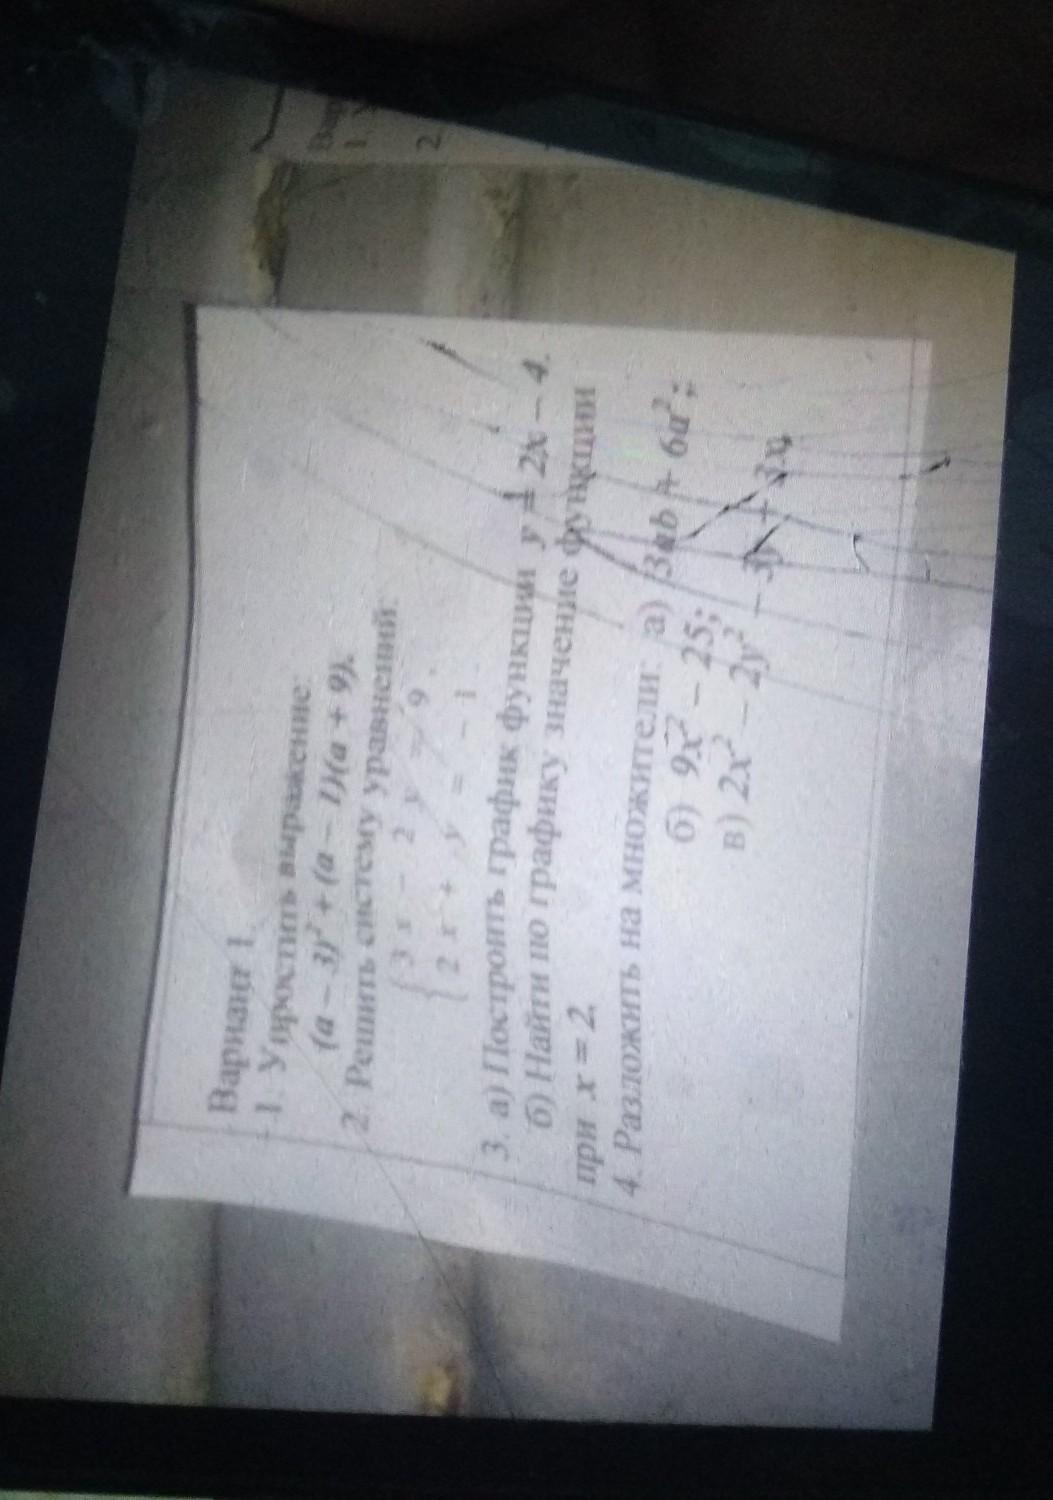 Вариант 1.
1. Упростить выражение:
(a – 3)² + (a – 1)(a + 9).
2. Решить систему уравнений:
{ 3 x – 2 y = 9
{ 2 x + y = – 1 .
3. а) Построить график функции y = 2x – 4.
б) Найти по графику значение функции
при x = 2.
4. Разложить на множители: а) 3ab + 6a²;
б) 9x² – 25;
в) 2x² – 2y² – 3y + 3x.
1.
2.